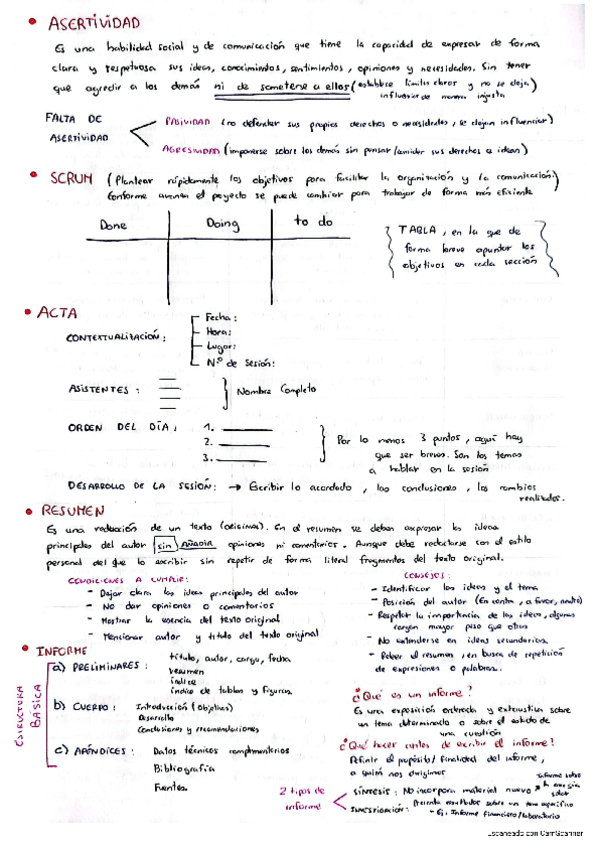 ASERTIVIDAD
Es una habilidad social y de comunicación que tiene la capacidad de expresar de forma
clara y respetuosa sus ideas, conocimientos, sentimientos, opiniones y necesidades. Sin tener
que agredir a los demás ni de someterse a ellos (establece límites claros y no se deja
influenciar de manera injusta)
FALTA DE
ASERTIVIDAD
PASIVIDAD (no defender sus propios derechos o necesidades, se dejan influenciar)
AGRESIVIDAD (imponerse sobre los demás sin pensar/ sus derechos e ideas)
SCRUM (Plantear rápidamente los objetivos para facilitar la organización y la comunicación)
Conforme avanza el proyecto se puede cambiar para trabajar de forma más eficiente
Done Doing to do
TABLA, en la que de
forma breve apuntar los
objetivos en cada sección
ACTA
CONTEXTUALIZACIÓN:
Fecha:
Hora:
Lugar:
Nº de Sesión:
ASISTENTES: Nombre Completo
ORDEN DEL DÍA:
1.
2.
3.
Por lo menos 3 puntos, aquí hay
que ser breves. Son los temas
a hablar en la sesión
DESARROLLO DE LA SESIÓN: → Escribir lo acordado, las conclusiones, los cambios
realizados.
RESUMEN
Es una reducción de un texto (original). En el resumen se deben expresar las ideas
principales del autor sin AÑADIR opiniones ni comentarios. Aunque debe redactarse con el estilo
personal del que lo escribir sin repetir de forma literal fragmentos del texto original.
CONDICIONES A CUMPLIR:
- Dejar clara las ideas principales del autor
- No dar opiniones o comentarios
- Mostrar la esencia del texto original
- Mencionar autor y título del texto original
CONSEJOS:
- Identificar las ideas y el tema
- Posición del autor (En contra, a favor, neutro)
- Respetar la importancia de las ideas, algunas
tengan mayor peso que otras
- No extenderse en ideas secundarias.
- Releer el resumen, en busca de repetición
de expresiones o palabras.
INFORME
ESTRUCTURA
BÁSICA
a) PRELIMINARES: título, autor, cargo, fecha
resumen
índice
índice de tablas y figuras
b) CUERPO: Introducción (objetivos)
Desarrollo
Conclusiones y recomendaciones
c) APÉNDICES: Datos técnicos complementarios
Bibliografía
Fuentes.
¿Qué es un informe?
Es una exposición ordenada y exhaustiva sobre
un tema determinado o sobre el estado de
una cuestión
¿Qué hacer antes de escribir el informe?
Definir el propósito/ finalidad del informe,
a quién nos dirigimos
2 tipos de
informe
SÍNTESIS: No incorpora material nuevo
Informe sobre
la energía
solar
INVESTIGACIÓN: Presenta resultados sobre un tema específico
- Ej: Informe Financiero/laboratorio
Escaneado con CamScanner